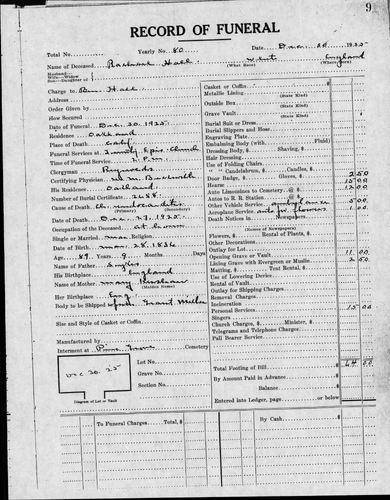 9
RECORD OF FUNERAL
Total No. Yearly No. 80 Date Dec. 1925
Name of Deceased Hall (What Race) (Where Born) England
Husband
Wife—Widow
Son—Daughter of
Charge to Hall
Address
Order Given by
How Secured
Date of Funeral Dec. 30 1925
Residence Oakland
Place of Death Calif
Funeral Services at Trinity Epis. Church
Time of Funeral Service 2 P.M.
Clergyman
Certifying Physician
His Residence Oakland
Number of Burial Certificate 2688
Cause of Death (Primary) (Secondary)
Date of Death Dec. 27. 1925
Occupation of the Deceased at home
Single or Married Religion
Date of Birth Mar. 28. 1836
Age 89 Years 9 Months Days
Name of Father
His Birthplace England
Name of Mother Mary (Maiden Name)
Her Birthplace Eng
Body to be Shipped to Grant Miller
Size and Style of Casket or Coffin
Manufactured by
Interment at Cemetery
Lot No.
Grave No.
Section No.
Dec 30. 25
Diagram of Lot or Vault
Casket or Coffin
Metallic Lining (State Kind)
Outside Box (State Kind)
Grave Vault (State Kind)
Burial Suit or Dress
Burial Slippers and Hose
Engraving Plate
Embalming Body (with Fluid)
Dressing Body, $ Shaving, $
Hair Dressing
Use of Folding Chairs
" " Candelabrum, $ Candles, $
Door Badge, $ Gloves, $ 2 50
Hearse 15 00
Auto Limousines to Cemetery @ $ 12 00
Autos to R. R. Station @ $
Other Vehicle Service ambulance 5 00
Aeroplane Service auto for flowers
Death Notices in Newspapers
(Names of Newspapers)
Flowers, $ Rental of Plants, $
Other Decorations
Outlay for Lot
Opening Grave or Vault 11 00
Lining Grave with Evergreen or Muslin 2 50
Matting, $ Tent Rental, $
Use of Lowering Device
Rental of Vault
Outlay for Shipping Charges
Removal Charges
Incineration
Personal Services 15 00
Singers
Church Charges, $ Minister, $
Telegrams and Telephone Charges
Pall Bearer Service
Total Footing of Bill $ 64 00
By Amount Paid in Advance
Balance
Entered into Ledger, page or below
To Funeral Charges Total, $ By Cash $